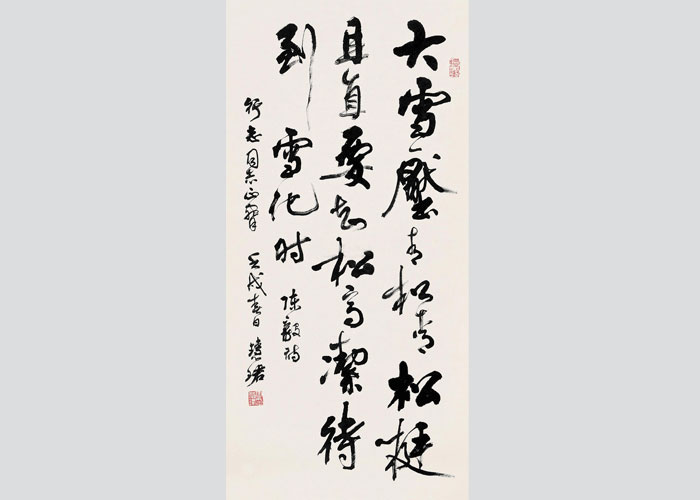 大雪壓青松青松挺
且直要知松高潔待
到雪化时
陈毅诗
行志同志正腕 壬戌春日